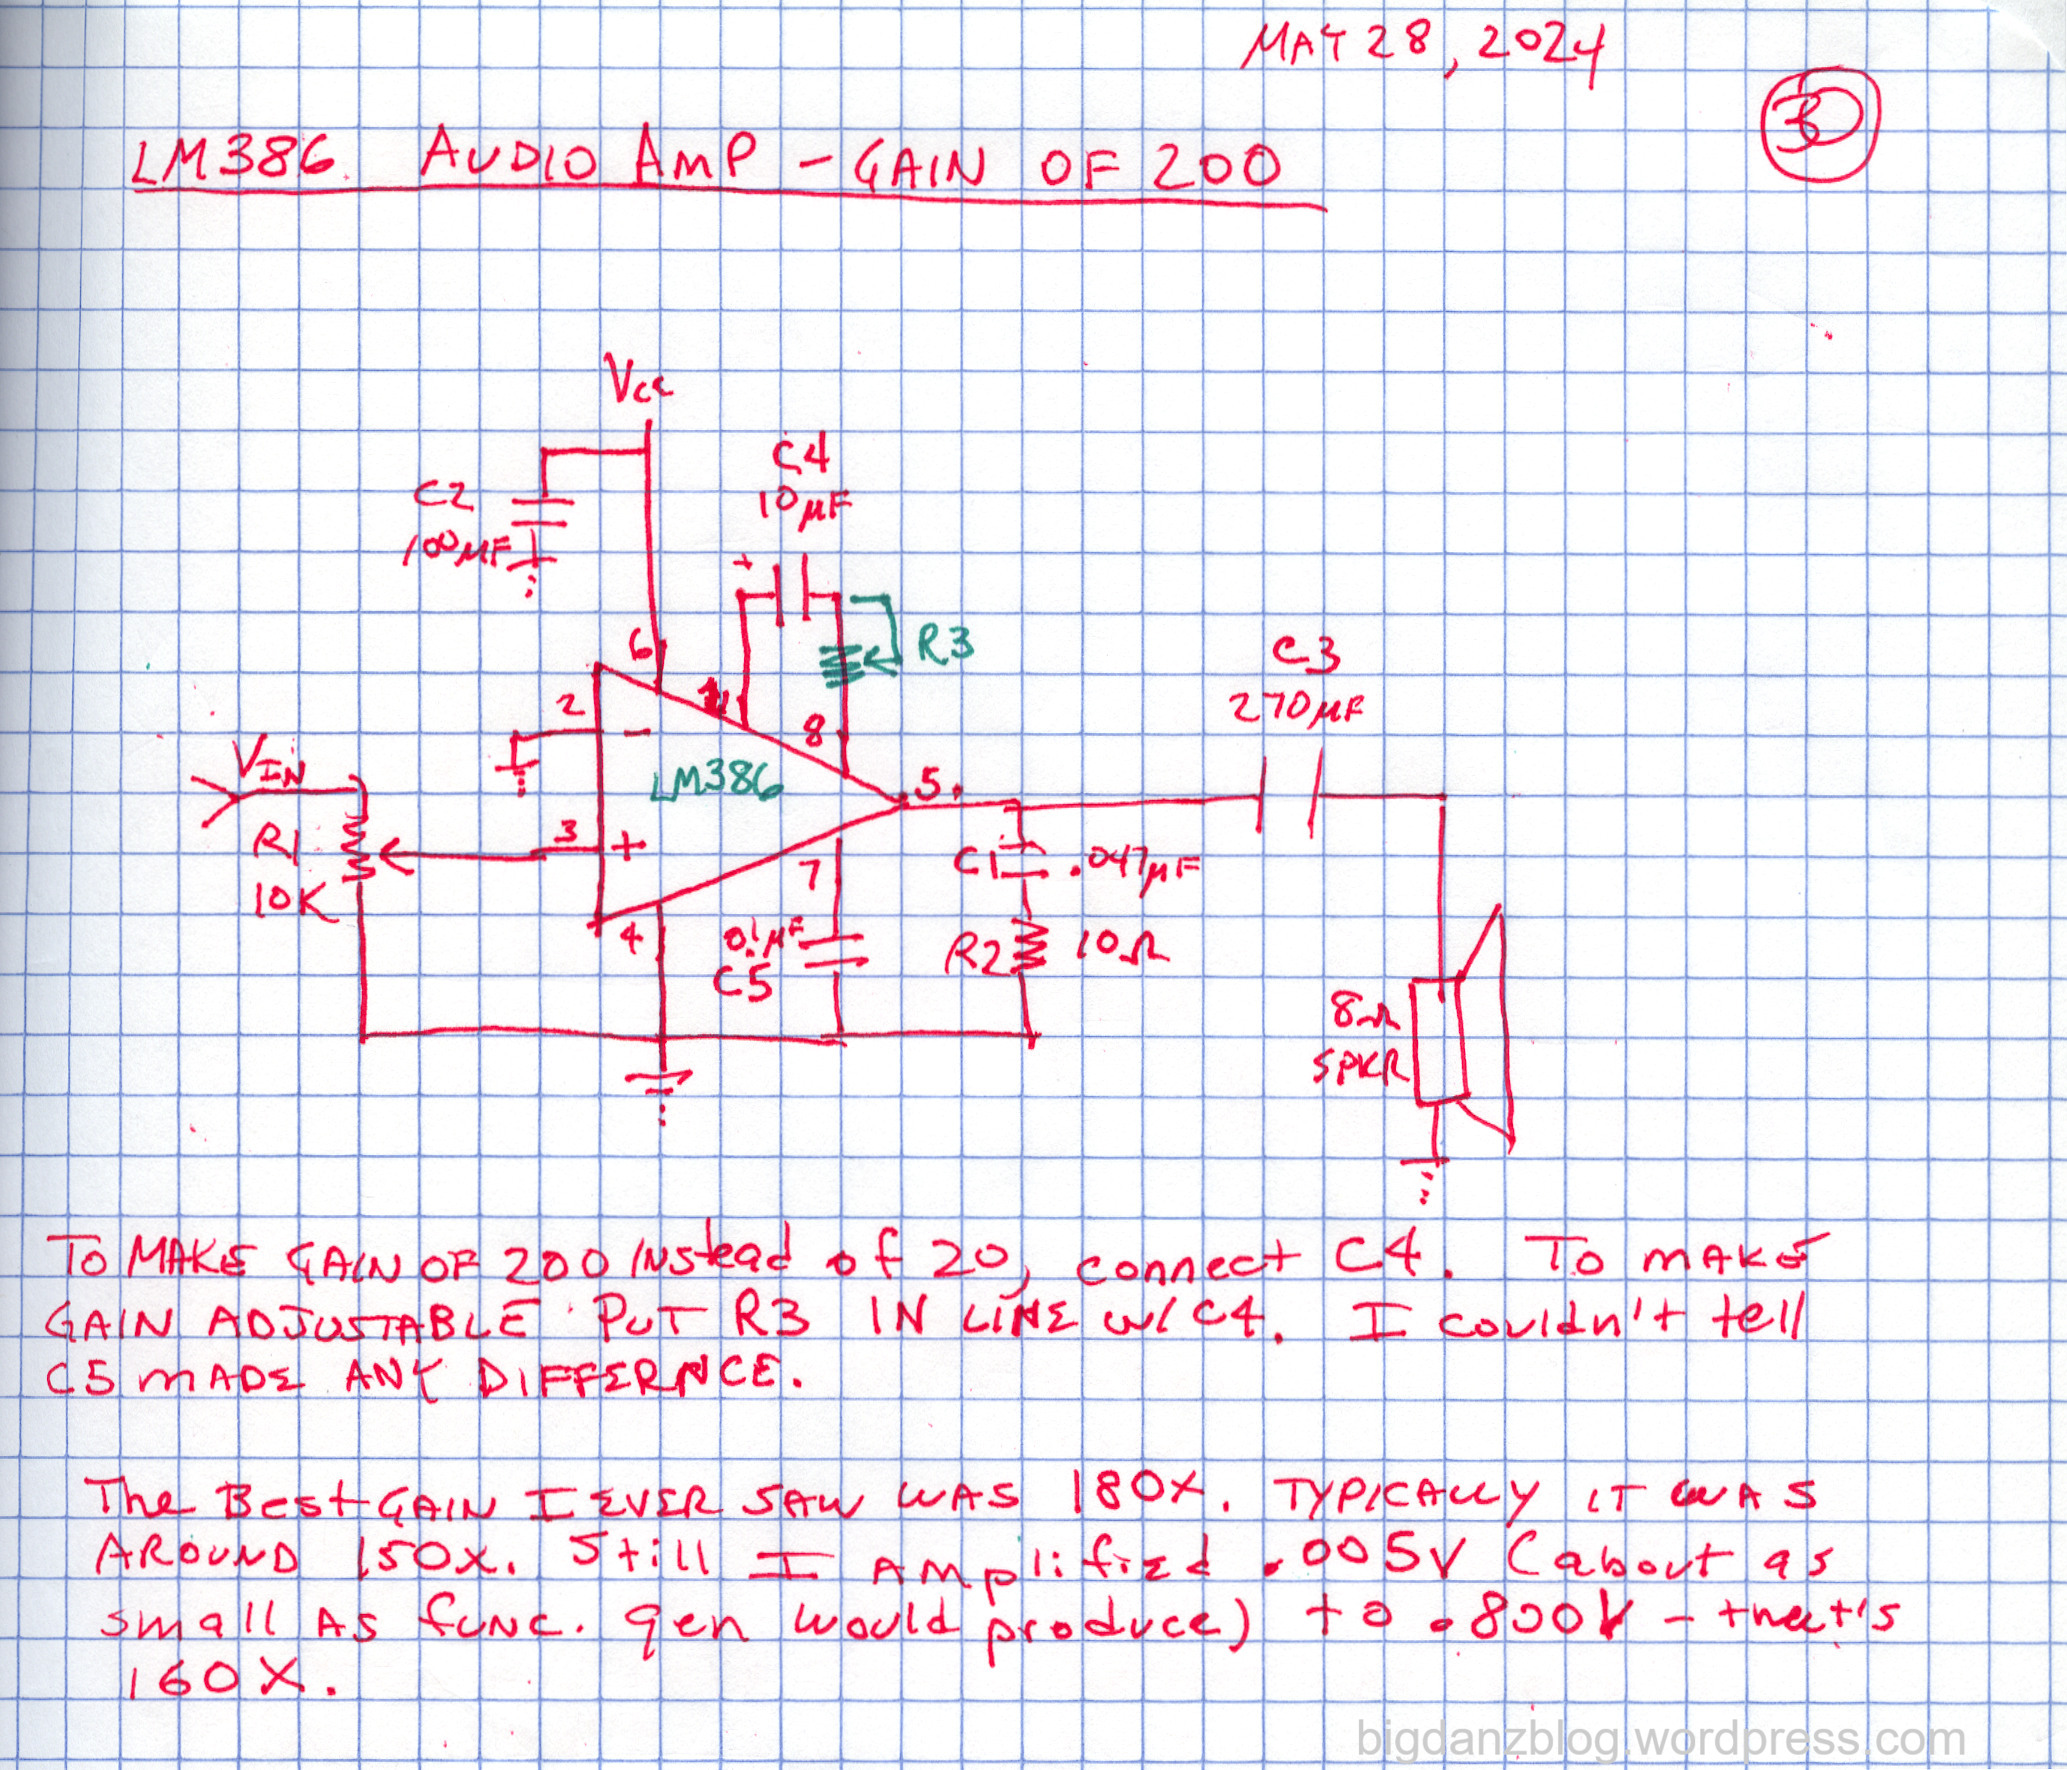 MAY 28, 2024
30
LM386 AUDIO AMP - GAIN OF 200
Vcc
C4
10µF
C2
100µF
+
6
1
R3
8
2
-
LM386
VIN
R1
10K
3
+
5
C3
270µF
7
C1 .047µF
4
0.1µF
C5
R2 10Ω
8Ω
SPKR
TO MAKE GAIN OF 200 INstead of 20, connect C4. To MAKE
GAIN ADJUSTABLE PUT R3 IN LINE W/ C4. I couldn't tell
C5 MADE ANY DIFFERNCE.
The Best GAIN I EVER SAW WAS 180X. TYPICALLY IT WAS
AROUND 150X. Still I AMplified .005V (about as
small As func. gen would produce) to .800V - that's
160X.
bigdanzblog.wordpress.com